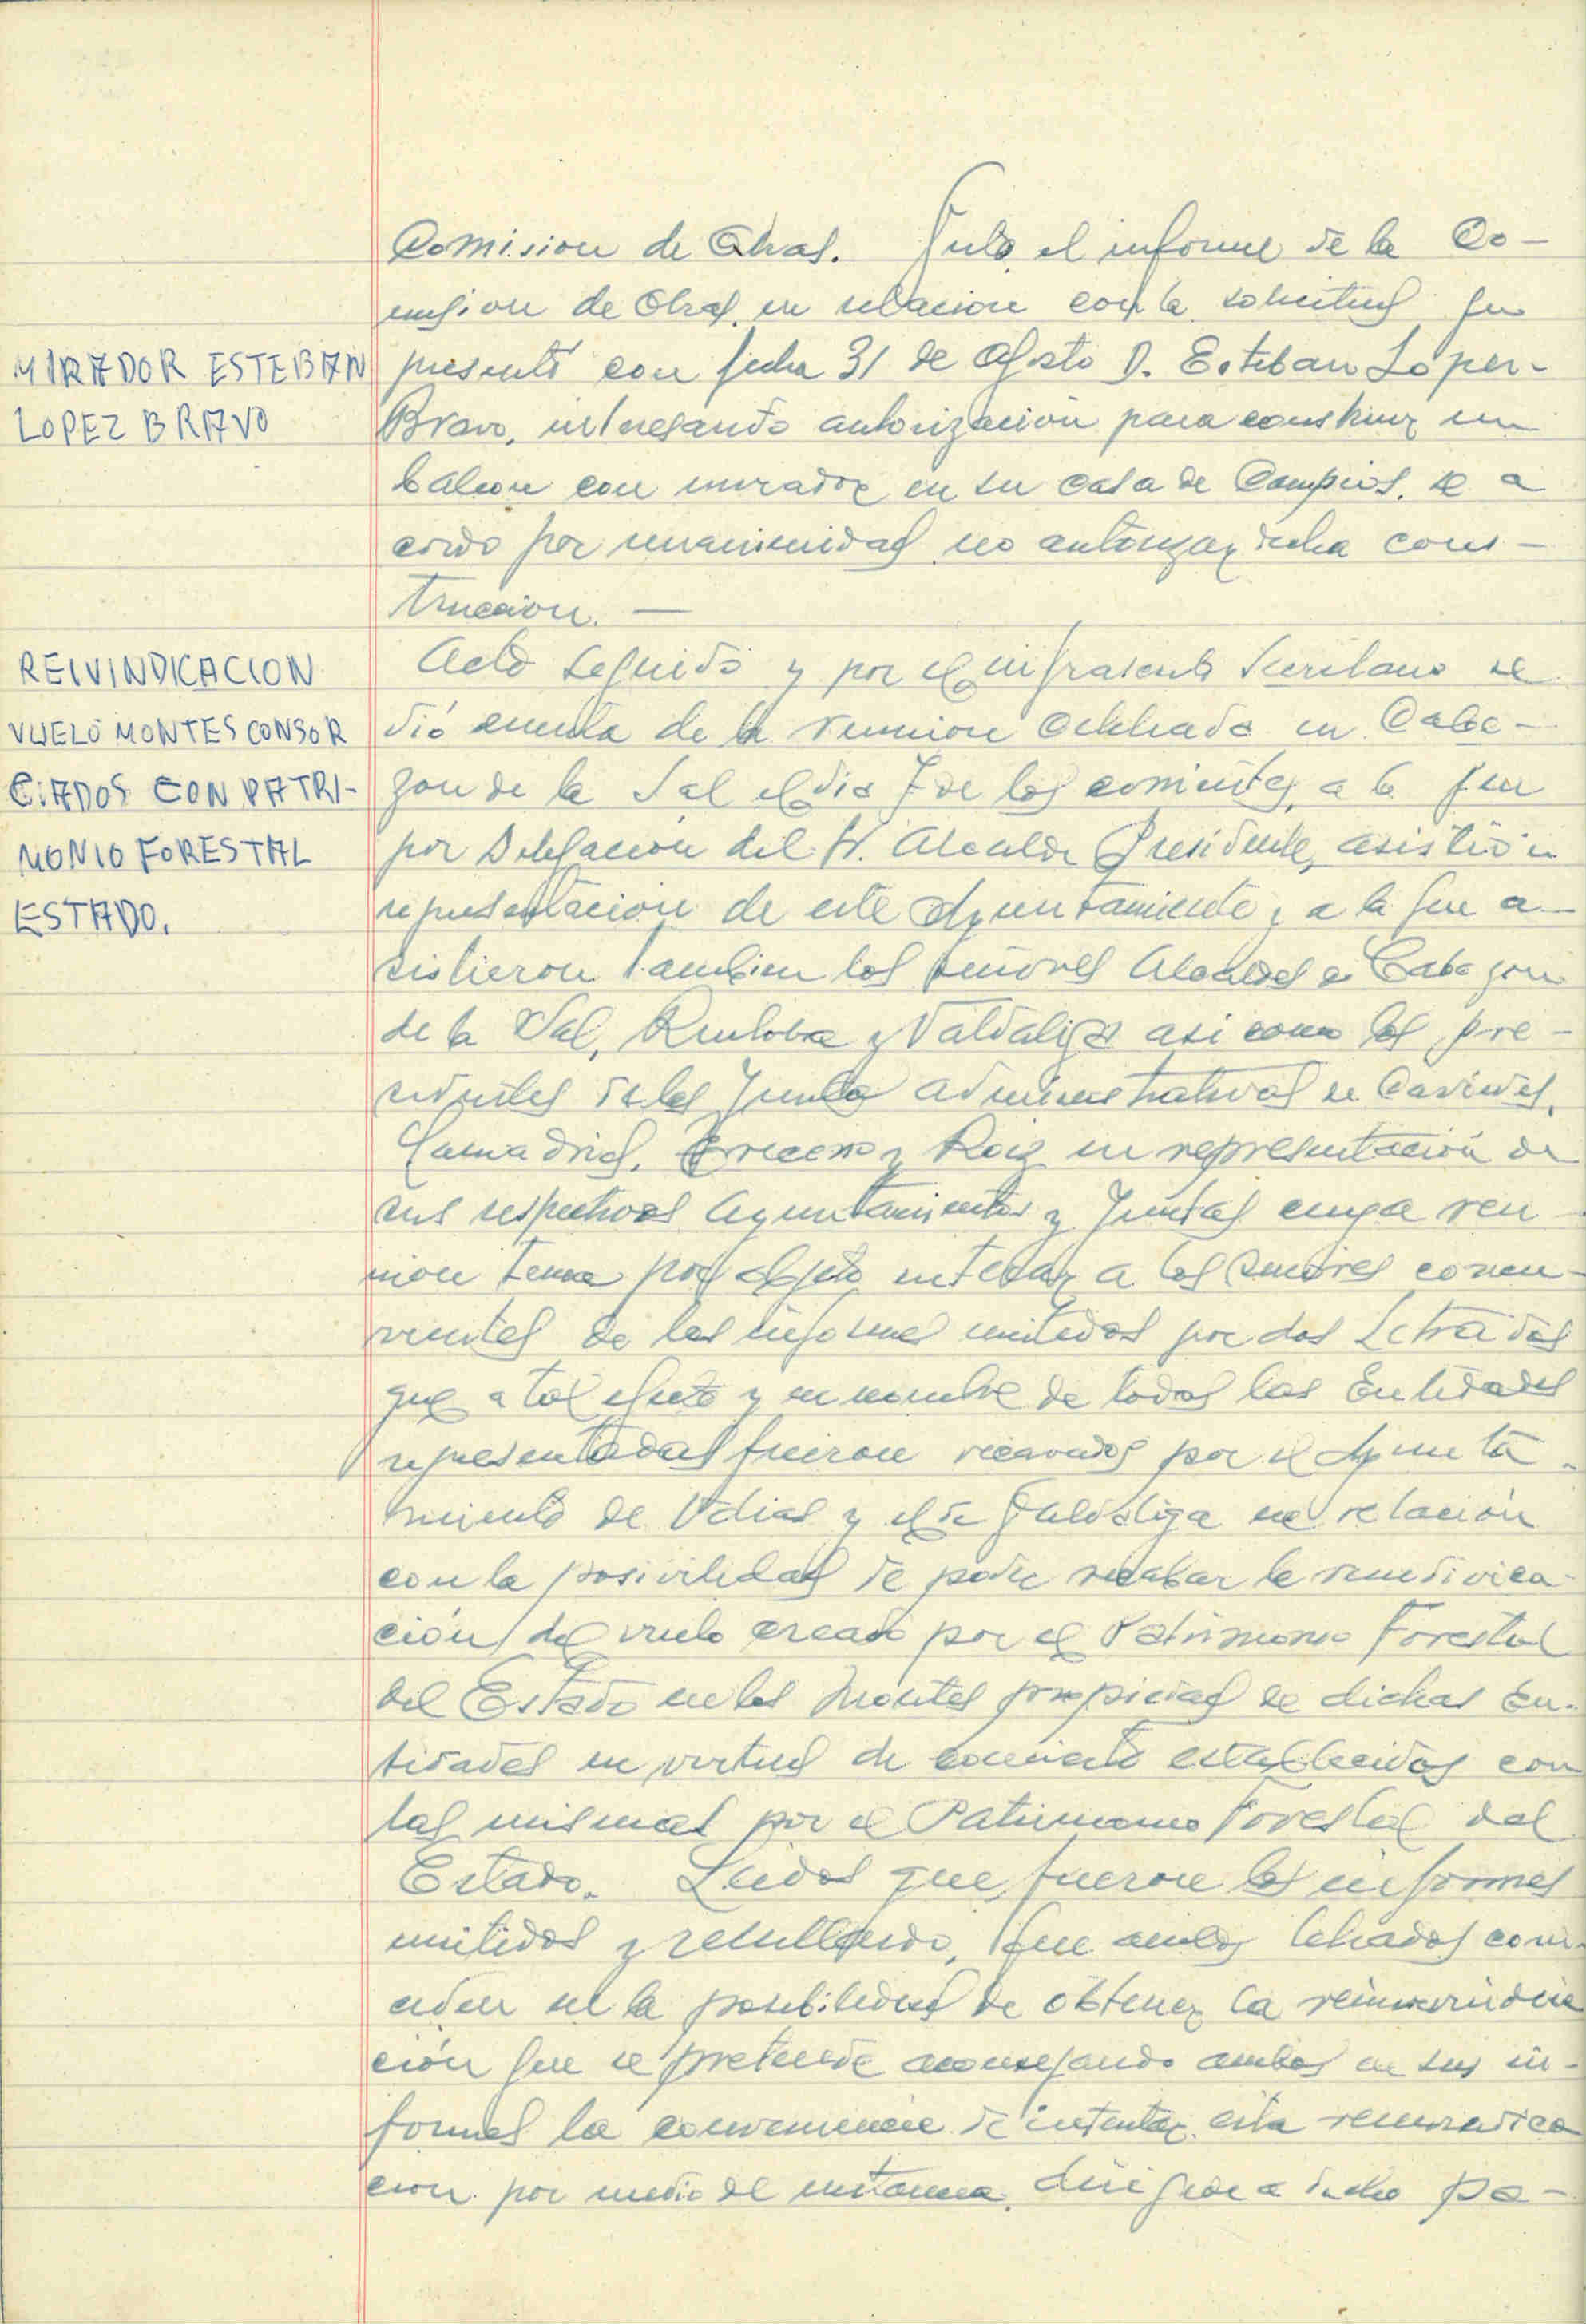 Comision de Obras. Visto el informe de la Co-
mision de Obras en relacion con la solicitud que
MIRADOR ESTEBAN
LOPEZ BRAVO
presentó con fecha 31 de Agosto D. Esteban Lopez-
Bravo, interesando autorización para construir un
balcon con mirador en su casa de Campios, se a
cordo por unanimidad no autorizar dicha cons-
truccion. —
REIVINDICACION
VUELO MONTES CONSOR
CIADOS CON PATRI-
MONIO FORESTAL
ESTADO.
Acto seguido y por el infrascrito Secretario se
dió cuenta de la reunion celebrada en Cabe-
zon de la Sal el dia 7 de los corrientes, a la que
por Delegacion del Sr. Alcalde Presidente, asistió en
representacion de este Ayuntamiento y a la que a-
sistieron tambien los señores Alcaldes de Cabezon
de la Sal, Ruiloba y Valdaliga asi como los pre-
sidentes de las Juntas administrativas de Caviedes,
Lamadrid, y Roiz en representación de
sus respectivos Ayuntamientos y Juntas cuya reu-
nion tenia por objeto enterar a los señores concu-
rrentes de los informes emitidos por dos Letrados
que a tal efecto y en nombre de todas las Entidades
representadas fueron recavados por el Ayunta-
miento de Udias y el de Valdaliga en relación
con la posivilidad de poder recabar la
ción del vuelo creado por el Patrimonio Forestal
del Estado en los Montes propiedad de dichas En-
tidades en virtud de establecidos con
las mismas por el Patrimonio Forestal del
Estado. Leidos que fueron los informes
emitidos y resultando, que ambos letrados coin-
ciden en la posibilidad de obtener la
ción que se pretende aconsejando ambos en sus in-
formes la conveniencia de intentar esta
cion por medio de instancia dirigida a dicho Pa-